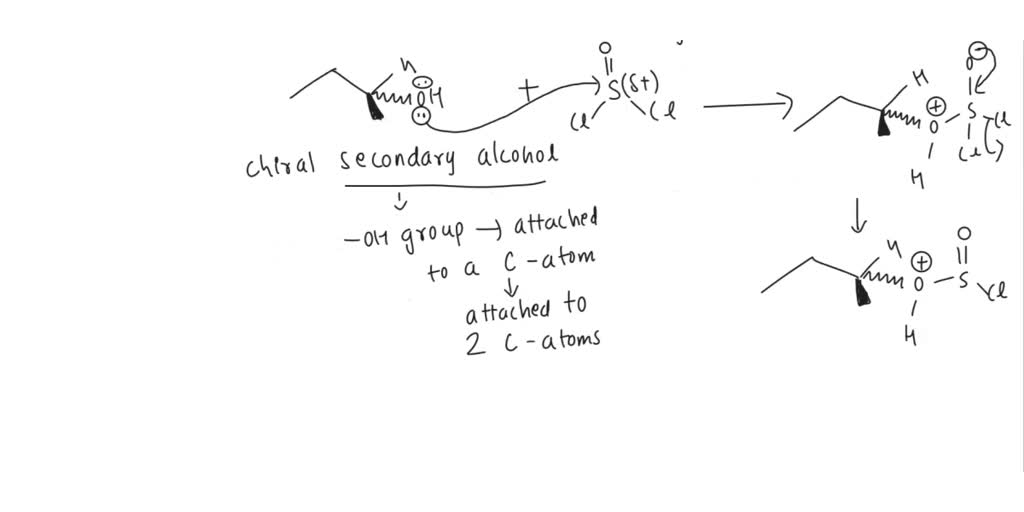 H
OH
+
O
S(δ+)
Cl Cl
H
⊕
O
H
O
S
Cl
Cl
chiral secondary alcohol
-OH group → attached
to a C-atom
attached to
2 C-atoms
H
⊕
O
H
O
S
Cl